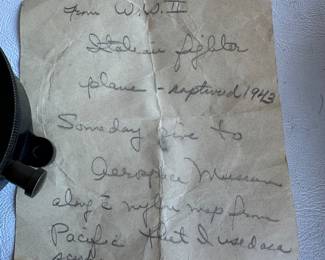 From W.W. II
Italian fighter
plane - captured 1943
Someday give to
Aerospace Museum
along c̄ nylon map from
Pacific that I used as a
scarf